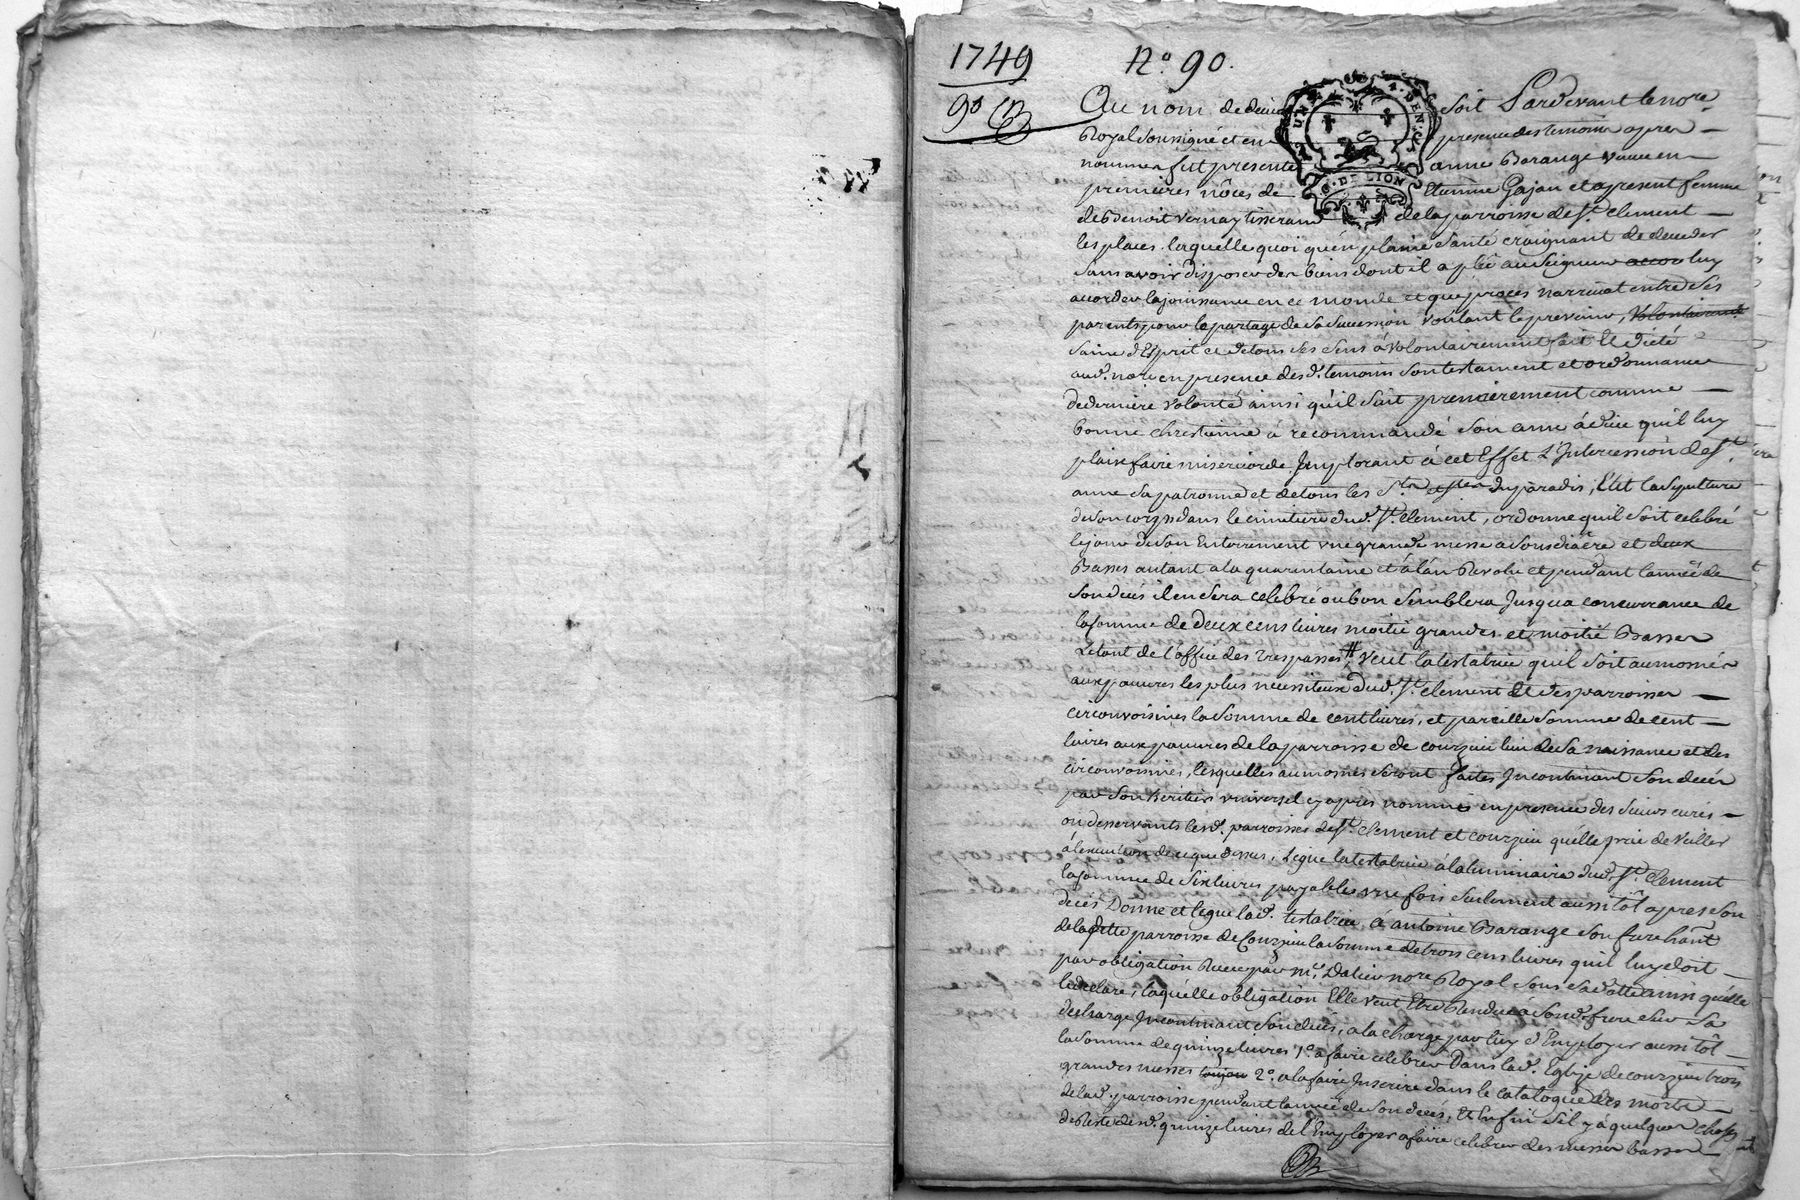 1749
N.o 90.
90
Au nom de dieu soit Pardevant le nore
Royal soussigné et en presence des temoins apres
nommes fut presente anne Barange veuve en
premieres nôces de Etienne Gajan et apresent femme
de Benoit Vernay tisserand de la parroisse de st. clement
les places. laquelle quoi qu'en plaine santé craignant de deceder
sans avoir disposer des biens dont il a plû au seigneur luy
accorder la jouissance en ce monde et que proces narrivat entre ses
parents pour le partage de sa succession voulant le prevenir, volontairemt
saine d'Esprit et de tous ses sens à volontairement fait Et dicté
aud. nore en presence desd. temoins son testament et ordonnance
de derniere volonté ainsi qu'il suit premierement comme
bonne chrestienne à recommandé son ame à dieu qu'il luy
plaise faire misericorde Implorant à cet Effet L'Intercession de st.
anne sa patronne et de tous les Sts du paradis, Elit la sepulture
de son corps dans le cimetiere dud. st. clement, ordonne quil soit celebré
le jour de son Enterrement vne grande messe a sousdiacre et deux
Basses autant a la quarantaine et à l'an Revolu et pendant l'année de
son deces il en sera celebré ou bon semblera Jusqua concurrance de
la somme de deux cens livres moitié grandes et moitié Basses
L'etant de l'office des trepasses #, veut la testatrice quil soit aumonés
aux pauvres les plus necessiteux dud. st. clement et des parroisses
circonvoisines la somme de cent livres, et pareille somme de cent
livres aux pauvres de la parroisse de courzieu lieu de sa naissance et des
circonvoisines, lesquelles aumones seront faites Incontinant son deces
par son heritier vniversel cy apres nommé en presence des sieurs curés
ou desservants lesd. parroisses de st. clement et courzieu qu'elle prie de veiller
à l'execution de ce que dessus, Legue la testatrice à la luminaire dud. st. clement
la somme de six livres payables vne fois seulement aussitôt apres son
deces Donne et legue lad. testatrice à antoine Barange son frere hant
de la ditte parroisse de Courzieu la somme de trois cens livres quil luy doit
par obligation Recue par me. Dalier nore Royal sous sa datte ainsi qu'elle
le declare, laquelle obligation Elle veut Etre Rendue à sond. frere sur sa
decharge Incontinant son deces, a la charge par luy d'Employer aussitôt
la somme de quinze livres 1o. a faire celebrer Dans lad. Eglize de courzieu trois
grandes messes 2o. a la faire Inscrire dans le catalogue des morts
de lad. parroisse pendant l'année de son deces, Et Enfin s'il y à quelque chose
de Reste desd. quinze livres de l'Employer a faire celebrer des messes basses